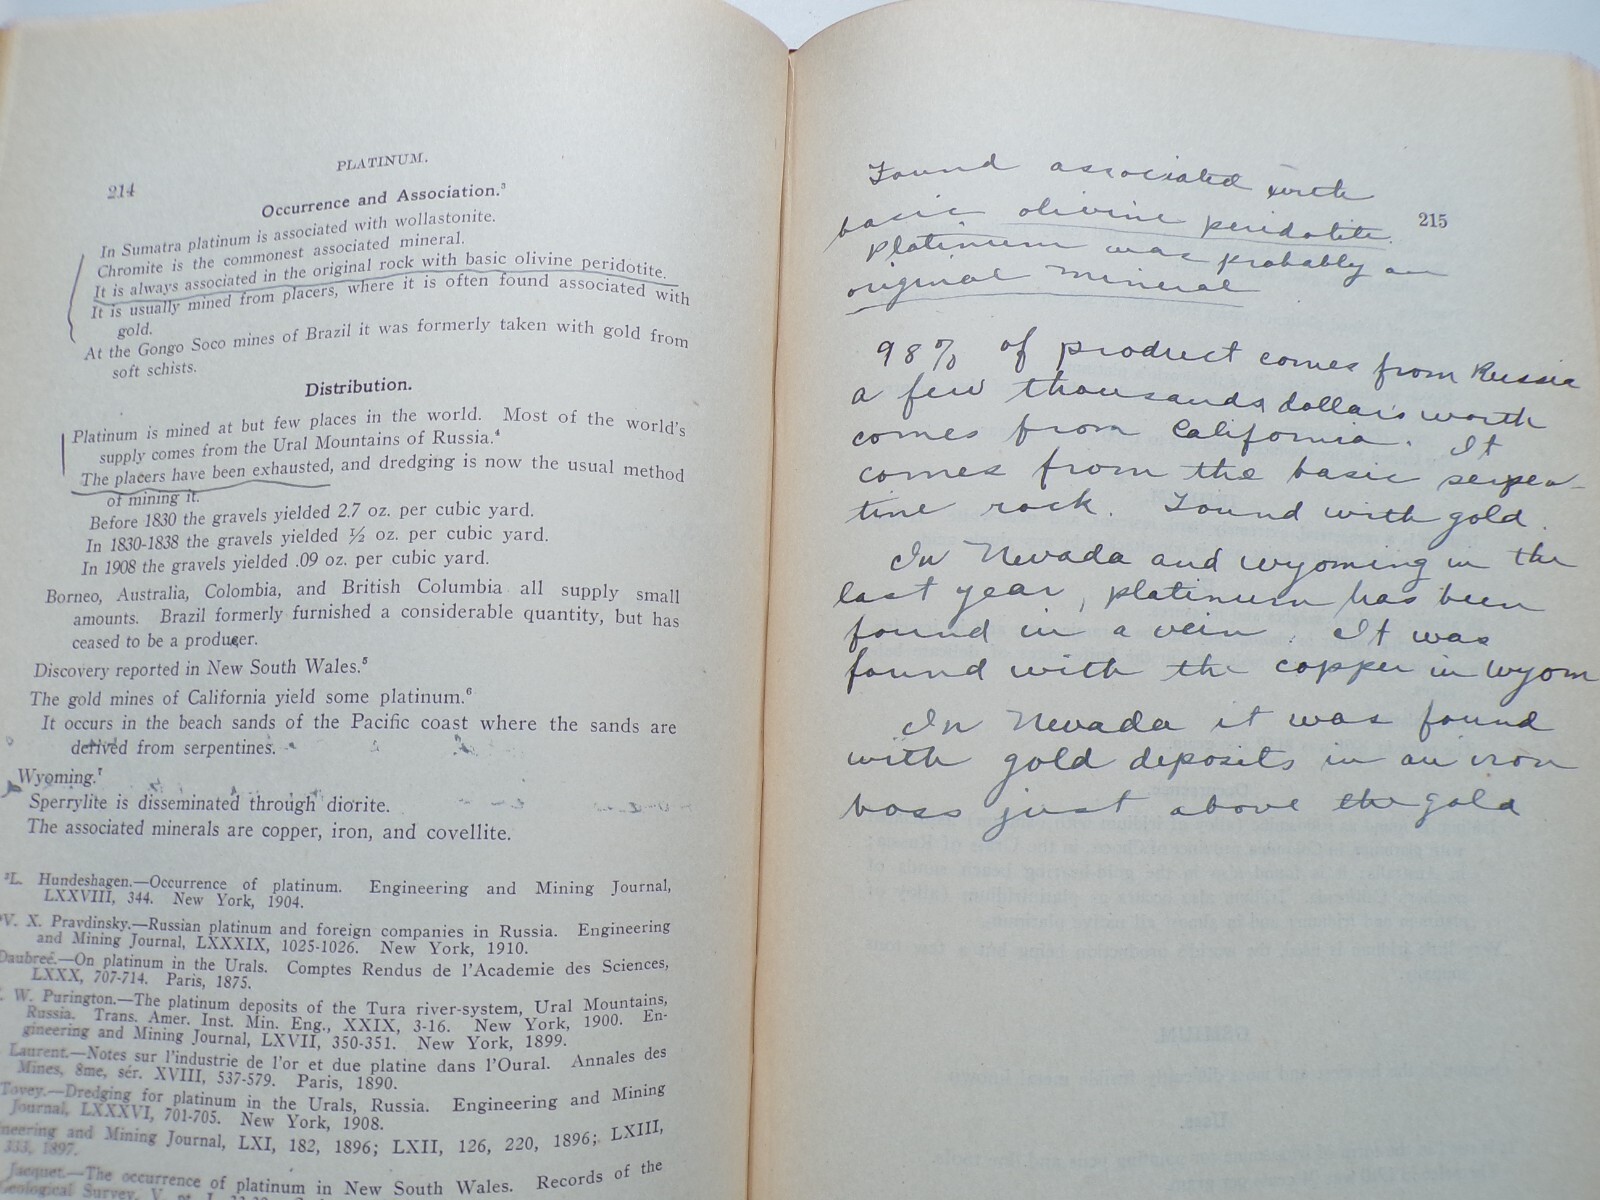 PLATINUM.
214
Occurrence and Association.³
In Sumatra platinum is associated with wollastonite.
Chromite is the commonest associated mineral.
It is always associated in the original rock with basic olivine peridotite.
It is usually mined from placers, where it is often found associated with
gold.
At the Gongo Soco mines of Brazil it was formerly taken with gold from
soft schists.
Distribution.
Platinum is mined at but few places in the world. Most of the world's
supply comes from the Ural Mountains of Russia.⁴
The placers have been exhausted, and dredging is now the usual method
of mining it.
Before 1830 the gravels yielded 2.7 oz. per cubic yard.
In 1830-1838 the gravels yielded ½ oz. per cubic yard.
In 1908 the gravels yielded .09 oz. per cubic yard.
Borneo, Australia, Colombia, and British Columbia all supply small
amounts. Brazil formerly furnished a considerable quantity, but has
ceased to be a producer.
Discovery reported in New South Wales.⁵
The gold mines of California yield some platinum.⁶
It occurs in the beach sands of the Pacific coast where the sands are
derived from serpentines.
Wyoming.⁷
Sperrylite is disseminated through diorite.
The associated minerals are copper, iron, and covellite.
³L. Hundeshagen.—Occurrence of platinum. Engineering and Mining Journal,
LXXVIII, 344. New York, 1904.
V. X. Pravdinsky.—Russian platinum and foreign companies in Russia. Engineering
and Mining Journal, LXXXIX, 1025-1026. New York, 1910.
Daubreé.—On platinum in the Urals. Comptes Rendus de l'Academie des Sciences,
LXXX, 707-714. Paris, 1875.
W. Purington.—The platinum deposits of the Tura river-system, Ural Mountains,
Russia. Trans. Amer. Inst. Min. Eng., XXIX, 3-16. New York, 1900. En-
gineering and Mining Journal, LXVII, 350-351. New York, 1899.
Laurent.—Notes sur l'industrie de l'or et due platine dans l'Oural. Annales des
Mines, 8me, sér. XVIII, 537-579. Paris, 1890.
Tovey.—Dredging for platinum in the Urals, Russia. Engineering and Mining
Journal, LXXXVI, 701-705. New York, 1908.
neering and Mining Journal, LXI, 182, 1896; LXII, 126, 220, 1896; LXIII,
333, 1897.
Jacquet.—The occurrence of platinum in New South Wales. Records of the
Geological Survey, V, pt. I,
215
Found associated with
basic olivine peridotite.
Platinum was probably an
original mineral
98% of product comes from Russia
a few thousands dollars worth
comes from California. It
comes from the basic serpen-
tine rock. Found with gold.
In Nevada and Wyoming in the
last year, platinum has been
found in a vein. It was
found with the copper in Wyom
In Nevada it was found
with gold deposits in an iron
boss just above the gold